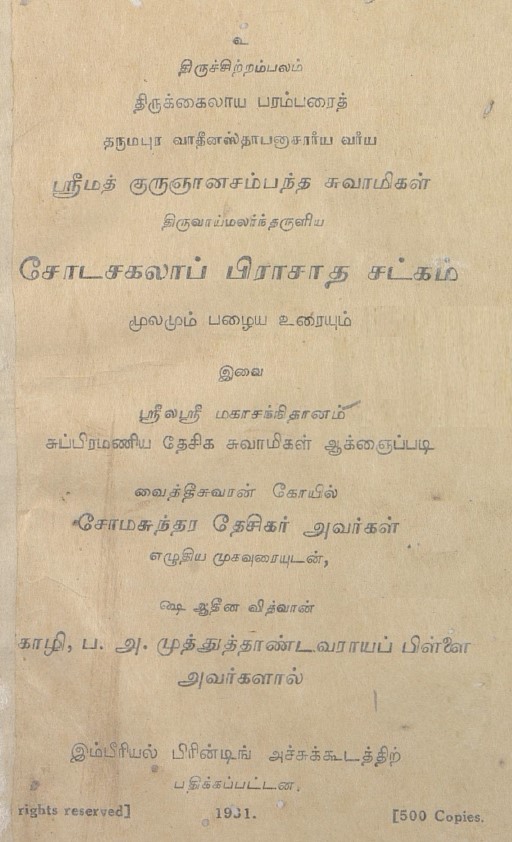 உ
திருச்சிற்றம்பலம்
திருக்கைலாய பரம்பரைத்
தருமபுர வாதீனஸ்தாபனாசாரிய வரிய
ஸ்ரீமத் குருஞானசம்பந்த சுவாமிகள்
திருவாய்மலர்ந்தருளிய
சோடசகலாப் பிராசாத சட்கம்
மூலமும் பழைய உரையும்
இவை
ஸ்ரீலஸ்ரீ மகாசந்நிதானம்
சுப்பிரமணிய தேசிக சுவாமிகள் ஆக்ஞைப்படி
வைத்தீசுவரன் கோயில்
சோமசுந்தர தேசிகர் அவர்கள்
எழுதிய முகவுரையுடன்,
௸ ஆதீன வித்வான்
காழி, ப. அ. முத்துத்தாண்டவராயப் பிள்ளை
அவர்களால்
இம்பீரியல் பிரின்டிங் அச்சுக்கூடத்திற்
பதிக்கப்பட்டன.
rights reserved] 1931. [500 Copies.